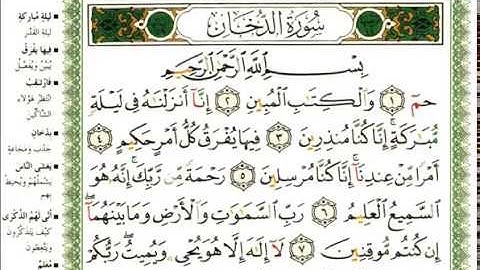 سُورَةُ الدُّخَانِ
بِسْمِ اللَّهِ الرَّحْمَٰنِ الرَّحِيمِ
حمٓ ١ وَالْكِتَابِ الْمُبِينِ ٢ إِنَّا أَنزَلْنَاهُ فِي لَيْلَةٍ
مُّبَارَكَةٍ ۚ إِنَّا كُنَّا مُنذِرِينَ ٣ فِيهَا يُفْرَقُ كُلُّ أَمْرٍ حَكِيمٍ ٤
أَمْرًا مِّنْ عِندِنَا ۚ إِنَّا كُنَّا مُرْسِلِينَ ٥ رَحْمَةً مِّن رَّبِّكَ ۚ إِنَّهُ هُوَ
السَّمِيعُ الْعَلِيمُ ٦ رَبِّ السَّمَاوَاتِ وَالْأَرْضِ وَمَا بَيْنَهُمَا ۖ
إِن كُنتُم مُّوقِنِينَ ٧ لَا إِلَٰهَ إِلَّا هُوَ يُحْيِي وَيُمِيتُ ۖ رَبُّكُمْ
لَيْلَةٍ مُّبَارَكَةٍ
لَيْلَةِ القَدْرِ
فِيهَا يُفْرَقُ
يُبَيَّنُ وَيُفَصَّلُ
فَارْتَقِبْ
انتَظِرْ هَؤُلَاءِ
الشَّاكِّينَ
بِدُخَانٍ
جَدْبٍ وَمَجَاعَةٍ
يَغْشَى النَّاسَ
يَشْمَلُهُمْ وَيُحِيطُ
بِهِمْ
أَنَّى لَهُمُ الذِّكْرَى
كَيْفَ يَتَذَكَّرُونَ
وَيَتَّعِظُونَ
مُعَلَّمٌ